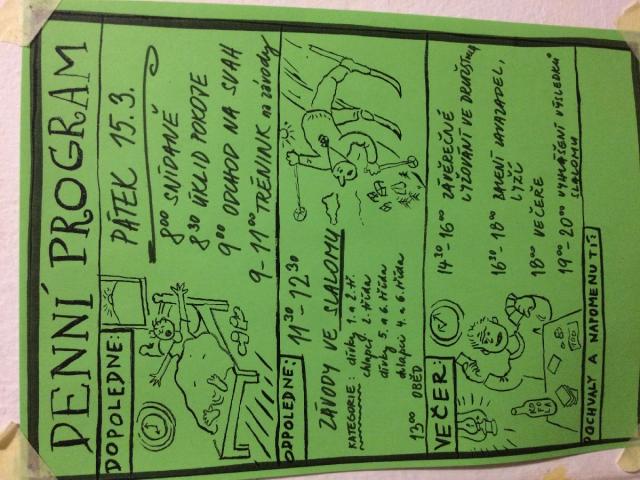 DENNÍ PROGRAM
DOPOLEDNE:
PÁTEK 15.3.
8⁰⁰ SNÍDANĚ
8³⁰ ÚKLID POKOJE
9⁰⁰ ODCHOD NA SVAH
9-11⁰⁰ TRÉNINK na závody
ODPOLEDNE:
11³⁰-12³⁰
ZÁVODY VE SLALOMU
KATEGORIE: dívky 1. a 2. tř.
chlapci 2. třída
dívky 5. a 6. třída
chlapci 4. a 6. třída
13⁰⁰ OBĚD
VEČER:
14³⁰-16⁰⁰ ZÁVĚREČNÉ
LYŽOVÁNÍ VE DRUŽSTVU
16³⁰-18⁰⁰ BALENÍ ZAVAZADEL,
LYŽÍ
18⁰⁰ VEČEŘE
19⁰⁰-20⁰⁰ VYHLÁŠENÍ VÝSLEDKŮ
SLALOMU
KOFOLA
POCHVALY A NAPOMENUTÍ: